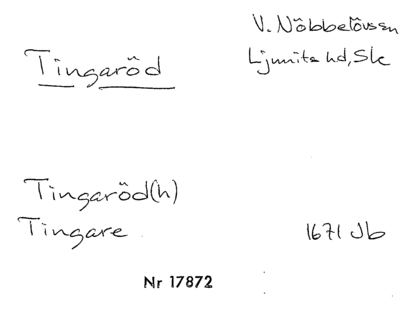 V. Nöbbelövs sn
Tingaröd
Ljunits hd, Sk
Tingaröd(h)
Tingare
1671 Jb
Nr 17872